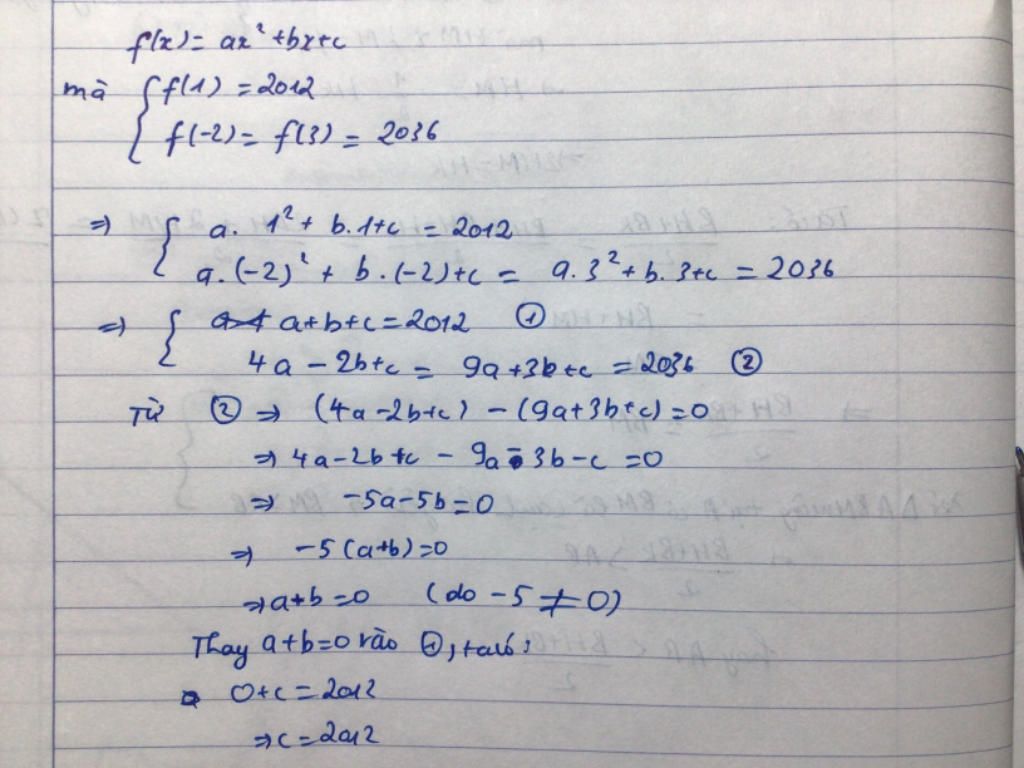 f(x) = ax² + bx + c
mà { f(1) = 2012
f(-2) = f(3) = 2036
⇒ { a. 1² + b.1 + c = 2012
a. (-2)² + b. (-2) + c = a. 3² + b. 3 + c = 2036
⇒ { a + b + c = 2012 ①
4a - 2b + c = 9a + 3b + c = 2036 ②
Từ ② ⇒ (4a - 2b + c) - (9a + 3b + c) = 0
⇒ 4a - 2b + c - 9a - 3b - c = 0
⇒ -5a - 5b = 0
⇒ -5(a + b) = 0
⇒ a + b = 0 (do -5 ≠ 0)
Thay a + b = 0 vào ①, ta có:
0 + c = 2012
⇒ c = 2012